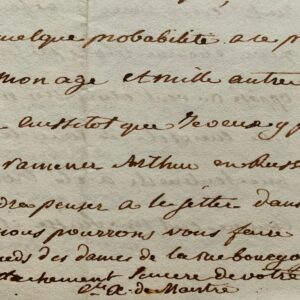 uelque probabilité a ce p
mon age et mille autre
aussitot que je veux y p
ramener Arthur en Russ
dra penser a le jetter dans
nous pourrons vous faire
ieds des dames de la rue
tachement sincere de votre
C.te X. de Maistre